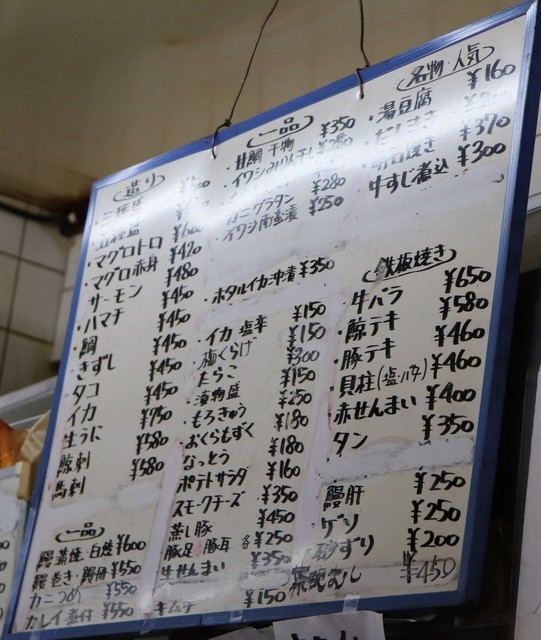 造り
マグロトロ ¥600
マグロ赤身 ¥420
サーモン ¥480
・ハマチ ¥450
・鯛 ¥450
きずし ¥450
タコ ¥450
イカ ¥450
生うに ¥750
鯨刺 ¥580
馬刺 ¥580
一品
鰻蒲焼・白焼 ¥600
鰻巻き・鰻骨 ¥550
カニつめ ¥550
カレイ煮付 ¥550
一品
・甘鯛 干物 ¥350
・イワシみりん干し
・カニグラタン ¥280
・イワシ南蛮漬 ¥250
・ホタルイカ沖漬 ¥350
・イカ塩辛 ¥150
・梅くらげ ¥150
・たらこ ¥300
・漬物盛 ¥150
・もろきゅう ¥250
・おくらもずく ¥180
なっとう ¥180
ポテトサラダ ¥160
スモークチーズ ¥350
蒸し豚 ¥450
豚足・豚耳 各¥250
生せんまい ¥350
キムチ ¥150
名物・人気
・湯豆腐 ¥160
¥370
牛すじ煮込 ¥300
鉄板焼き
・牛バラ ¥650
・鯨テキ ¥580
・豚テキ ¥460
・貝柱(塩・バタ) ¥460
・赤せんまい ¥400
・タン ¥350
鰻肝 ¥250
ゲソ ¥250
砂ずり ¥200
茶碗むし ¥450